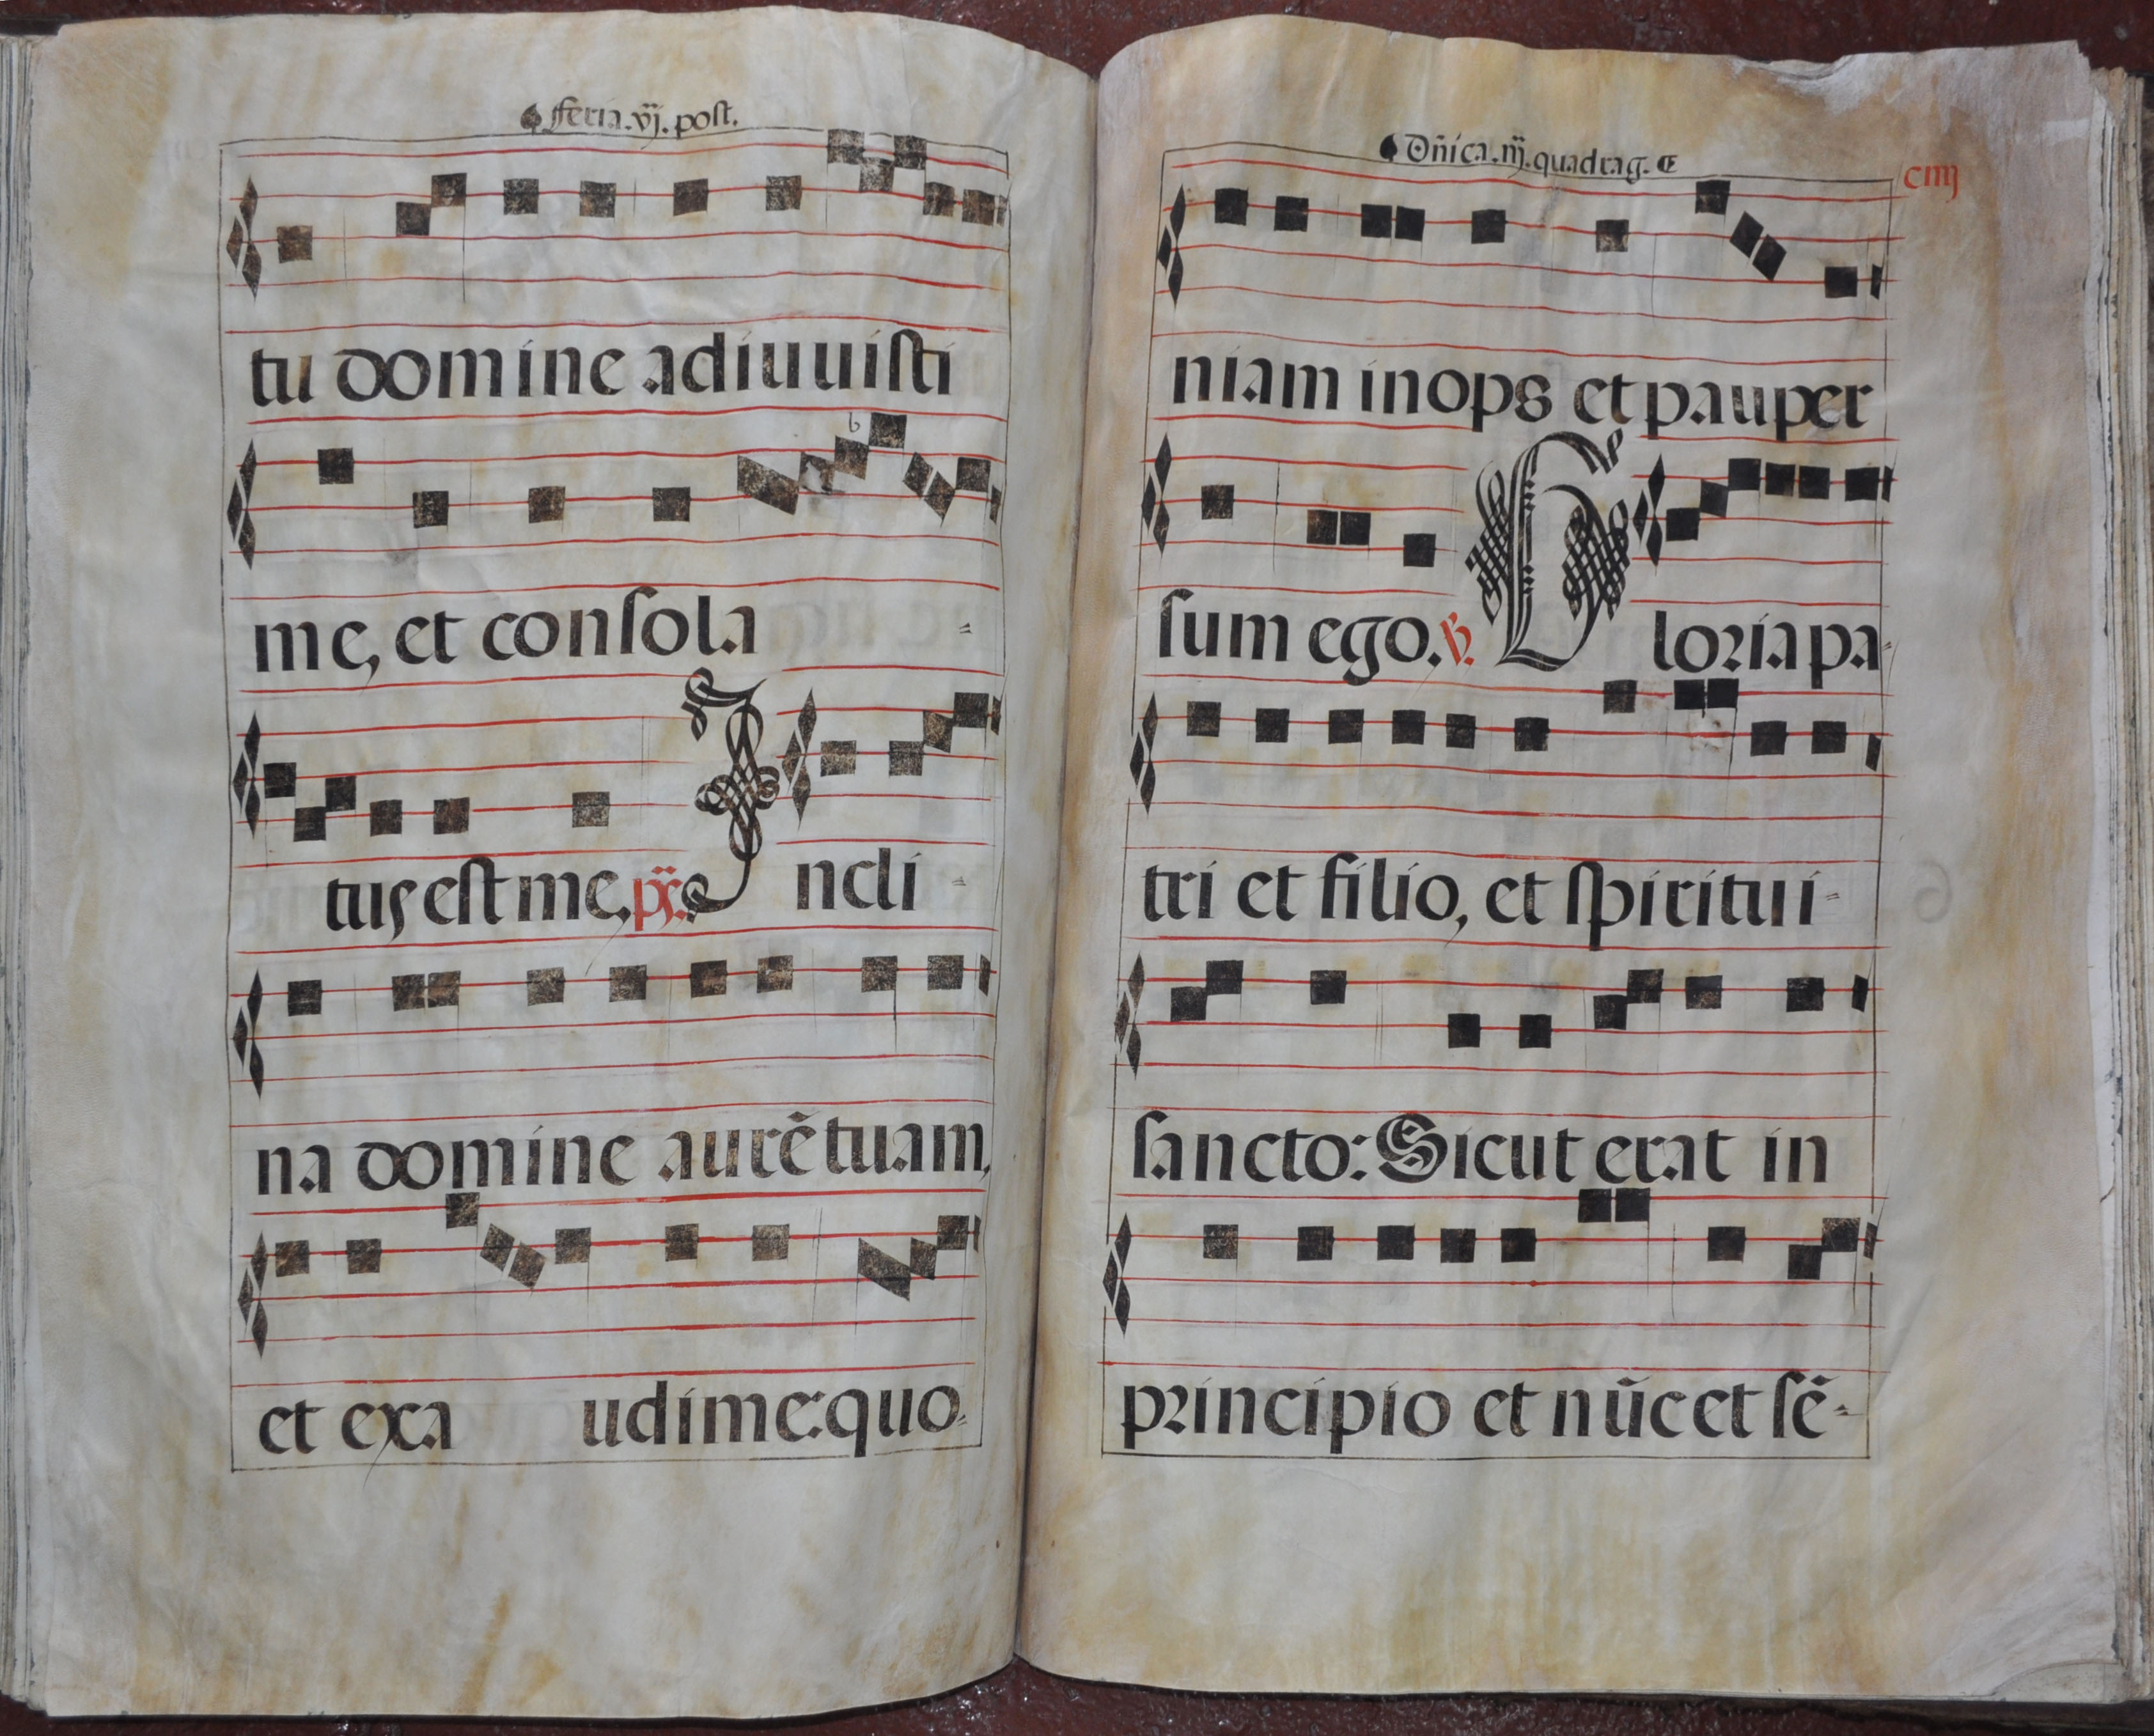 feria.vj. post.
tu domine adiuuisti
me, et consola
tus est me, ps. I ncli
na domine aurẽ tuam,
et exa udi me: quo
Dñica.iij. quadrag.
ciiij
niam inops et pauper
sum ego. V. G loria pa
tri et filio, et spiritui
sancto: Sicut erat in
principio et nũc et sẽ